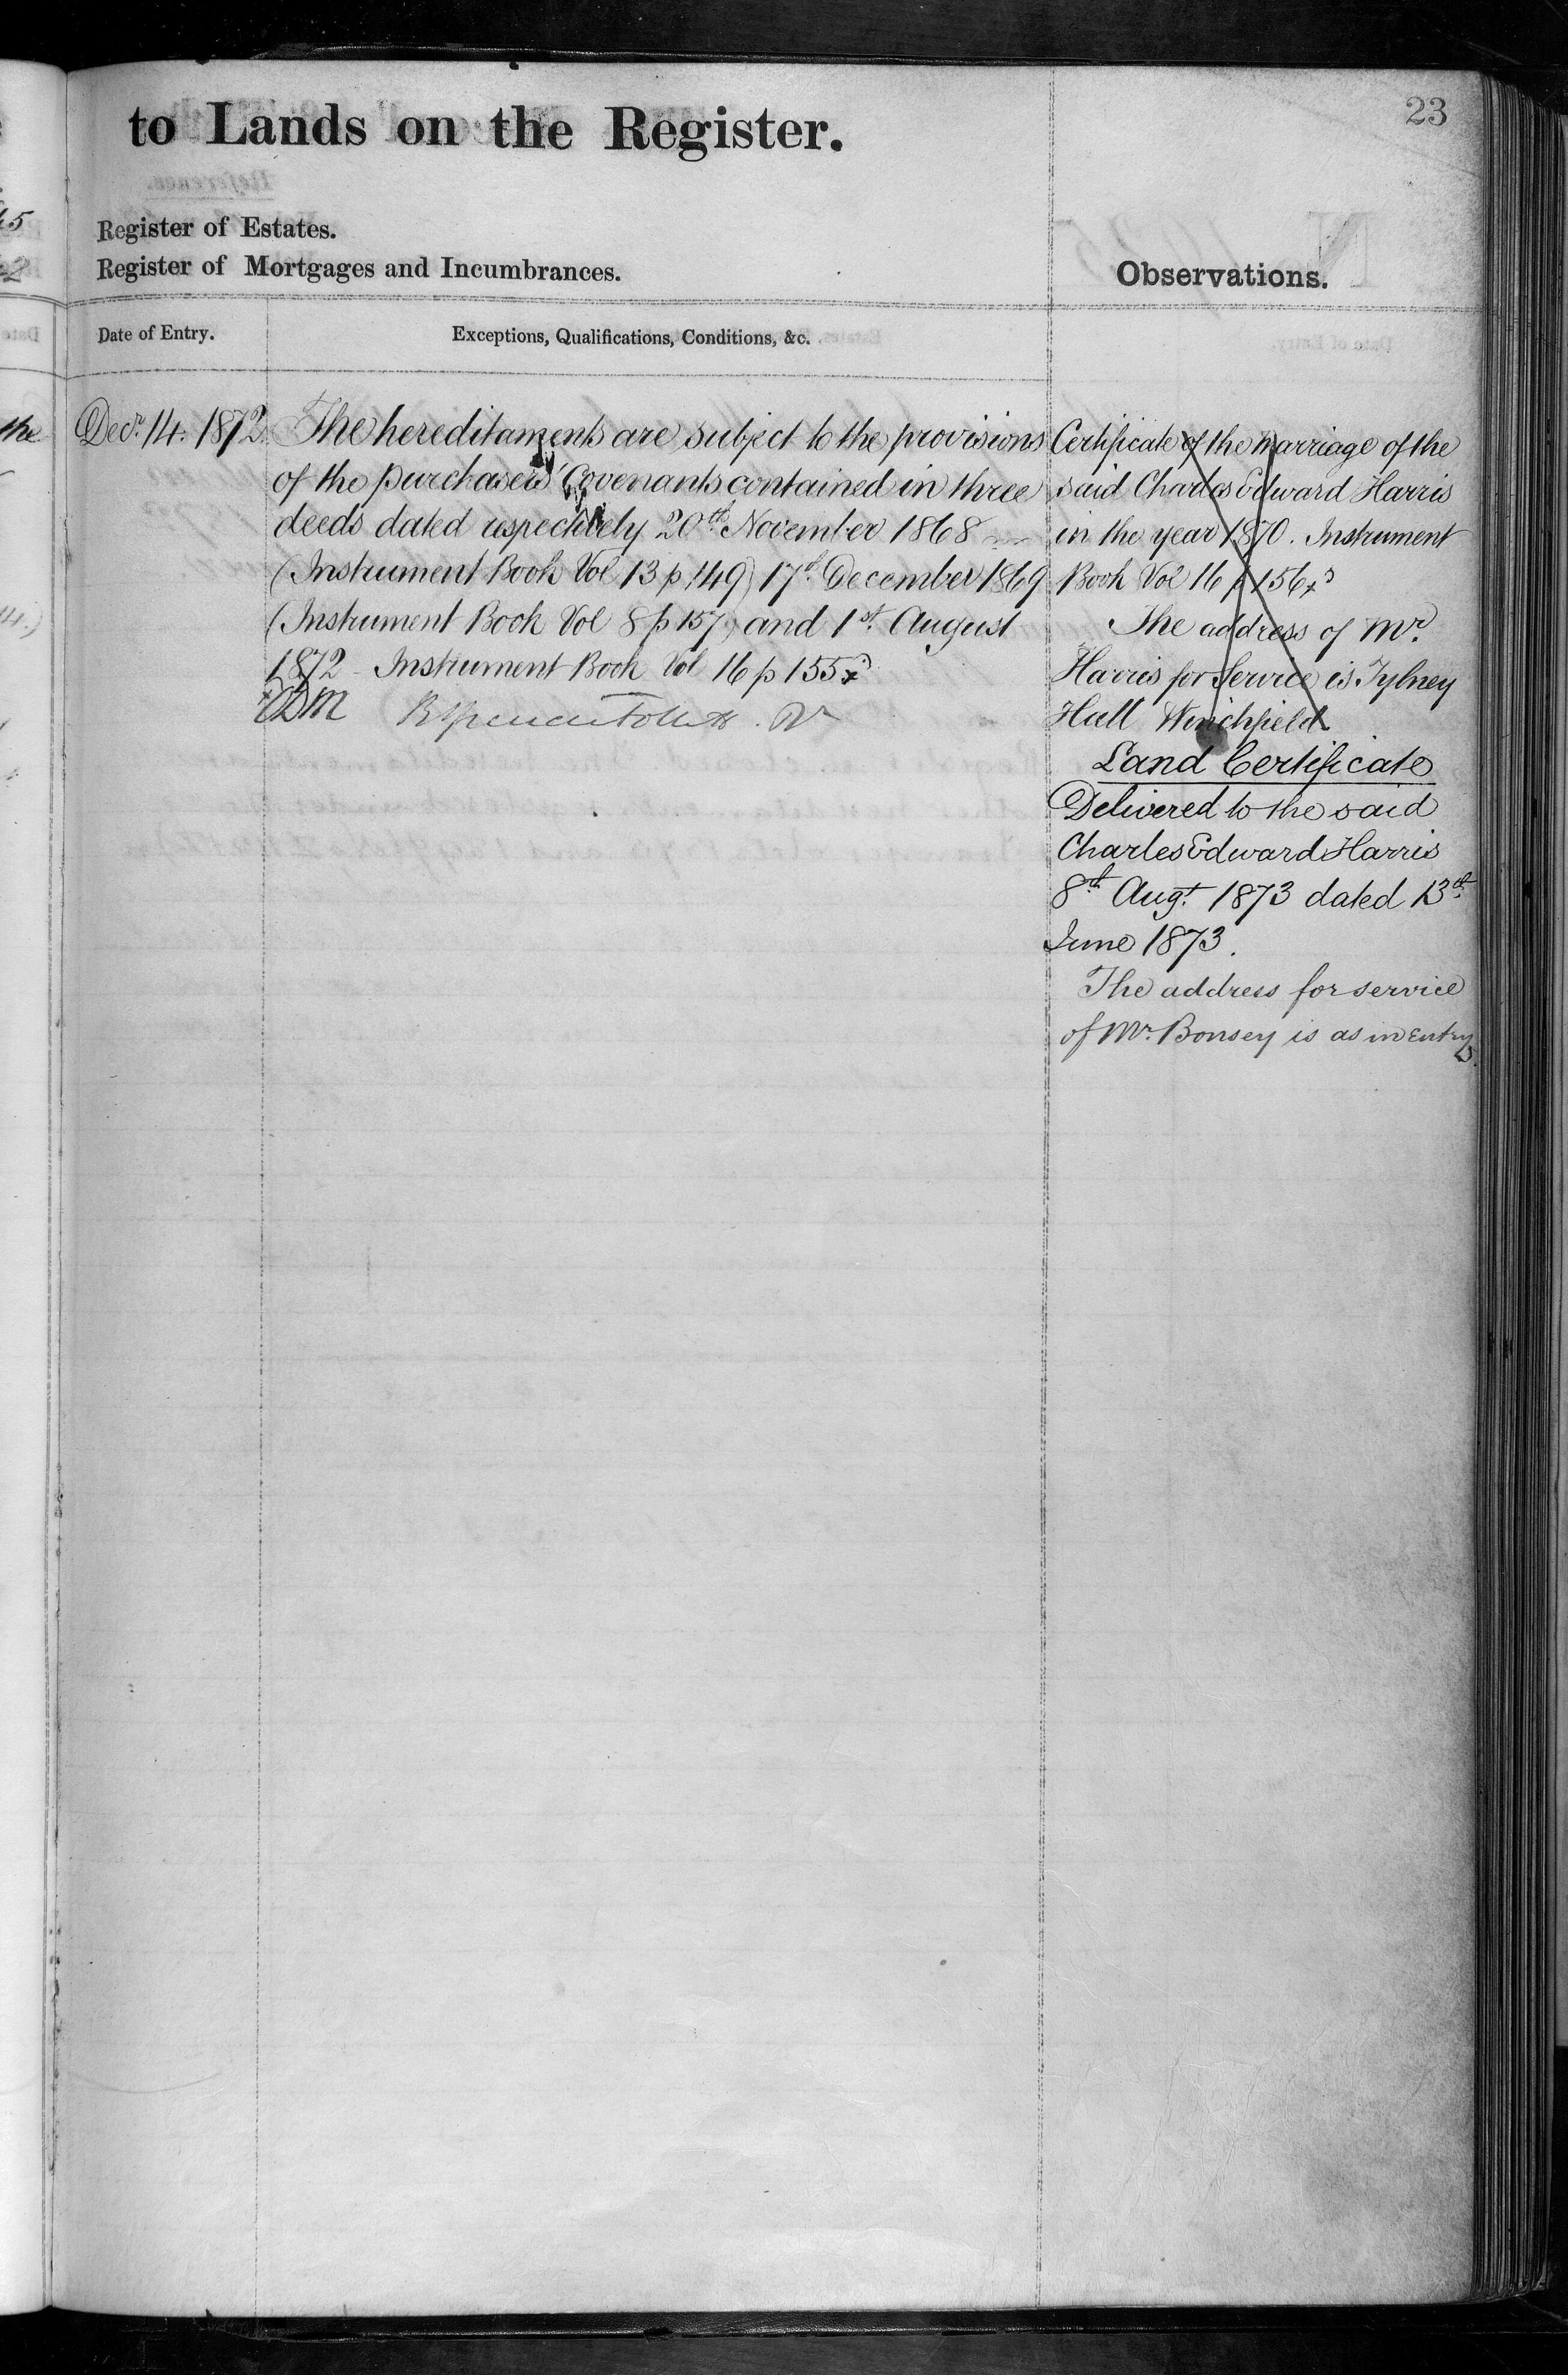 23
to Lands on the Register.
Register of Estates.
Register of Mortgages and Incumbrances.
Observations.
Date of Entry.
Exceptions, Qualifications, Conditions, &c.
Decr. 14. 1872
The hereditaments are subject to the provisions
of the purchasers' Covenants contained in three
deeds dated respectively 20th November 1868
(Instrument Book Vol 13 p 149) 17th December 1869
(Instrument Book Vol 8 p 157) and 1st August
1872 - Instrument Book Vol 16 p 155
Certificate of the marriage of the
said Charles Edward Harris
in the year 1870. Instrument
Book Vol 16 p 156
The address of Mr.
Harris for Service is Tylney
Hall Winchfield
Land Certificate
Delivered to the said
Charles Edward Harris
8th Augt. 1873 dated 13th
June 1873.
The address for service
of Mr. Bonsey is as in Entry